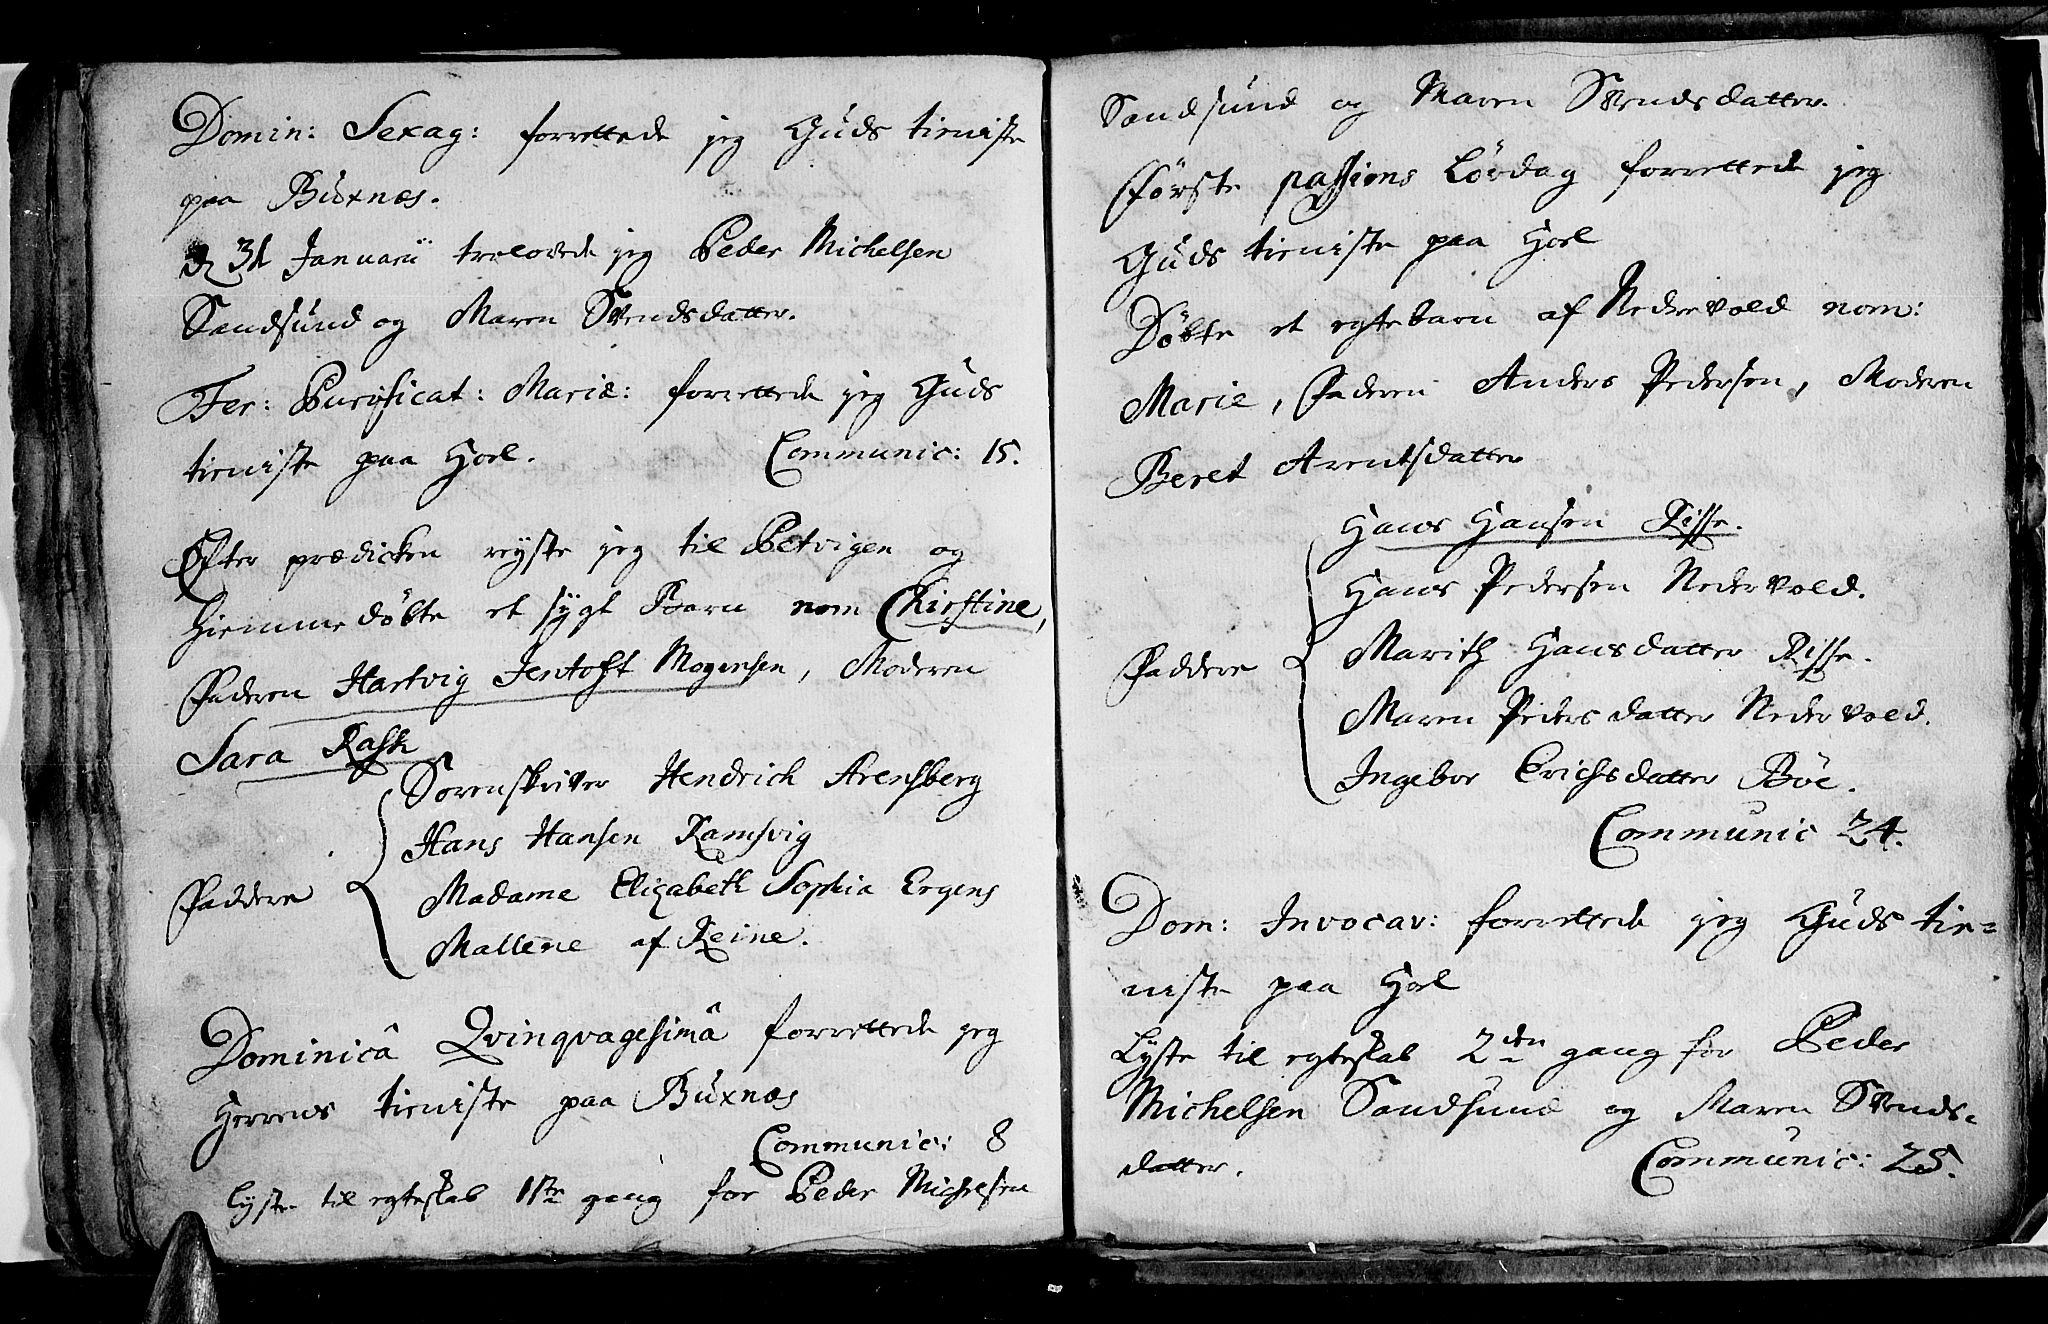 Domin: Sexag: forrettede jeg Guds tieniste
paa Buxnæs.
d 31 Januarii trolovede jeg Peder Michelsen
Sandsund og Maren Svendsdatter.
Fer: Purificat: Mariæ: forrettede jeg Guds
tieniste paa Hoel. Communic: 15.
Efter prædicken reyste jeg til Petvigen og
hiemmedöbte et sygt Barn nom Chirstine,
Faderen Hartvig Jentoft Mogensen, Moderen
Sara Rask
Sorenskriver Hendrich Arensberg
Hans Hansen Ramsvig
Faddere Madame Elizabeth Sophia Ergens
Mallene af Reine.
Dominicâ Qvinqvagesimâ forrettede jeg
Herrens tieniste paa Buxnæs
Communic: 8
lyste til egteskab 1ste gang for Peder Michelsen
Sandsund og Maren Svendsdatter.
Förste passions Lövdag forrettede jeg
Guds tieniste paa Hoel
Döbte et egtebarn af Nedrevold nom:
Marie, Faderen Anders Pedersen, Moderen
Beret Arentsdatter
Hans Hansen Risse.
Hans Pedersen Nedervold.
Faddere Marith Hansdatter Risse.
Maren Pedersdatter Nedervold.
Ingebor Erichsdatter Böe.
Communic 24.
Dom: Invocav: forrettede jeg Guds tie=
niste paa Hoel
Lyste til egteskab 2den gang for Peder
Michelsen Sandsund og Maren Svends-
datter. Communic: 25.